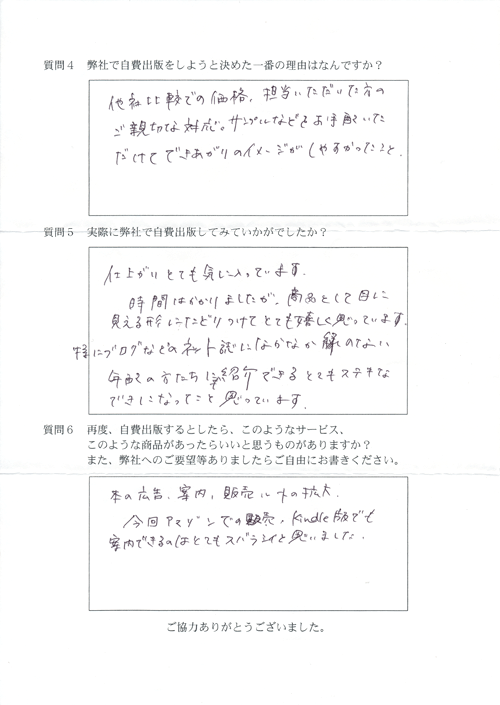 質問4 弊社で自費出版をしようと決めた一番の理由はなんですか?
他社比較での価格、担当いただいた方の
ご親切な対応。サンプルなどをお手配いた
だけてできあがりのイメージがしやすかったこと.
質問5 実際に弊社で自費出版してみていかがでしたか?
仕上がりとても気に入っています.
時間はかかりましたが、商品として目に
見える形にたどりつけてとても嬉しく思っています.
特にブログなどのネット誌になかなか解れのない
年配の方たちに紹介できるとてもステキな
できになったこと思っています.
質問6 再度、自費出版するとしたら、このようなサービス、
このような商品があったらいいと思うものがありますか?
また、弊社へのご要望等ありましたらご自由にお書きください。
本の広告、案内、販売ルートの拡大.
今回アマゾンでの販売、Kindle版でも
案内できるのはとてもスバラシイと思いました.
ご協力ありがとうございました。